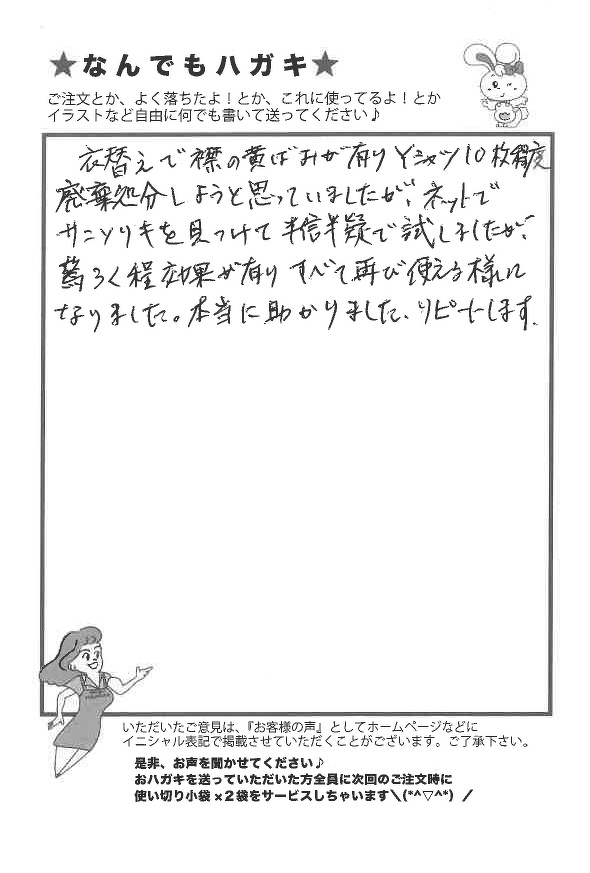 ★なんでもハガキ★
ご注文とか、よく落ちたよ！とか、これに使ってるよ！とか
イラストなど自由に何でも書いて送ってください♪
衣替えで襟の黄ばみが有りYシャツ10枚程度
廃棄処分しようと思っていましたが、ネットで
サンソリキを見つけて半信半疑で試しましたが、
驚ろく程効果が有りすべて再び使える様に
なりました。本当に助かりました、リピートします。
いただいたご意見は、『お客様の声』としてホームページなどに
イニシャル表記で掲載させていただくことがございます。ご了承下さい。
是非、お声を聞かせてください♪
おハガキを送っていただいた方全員に次回のご注文時に
使い切り小袋×2袋をサービスしちゃいます＼(*^▽^*)／